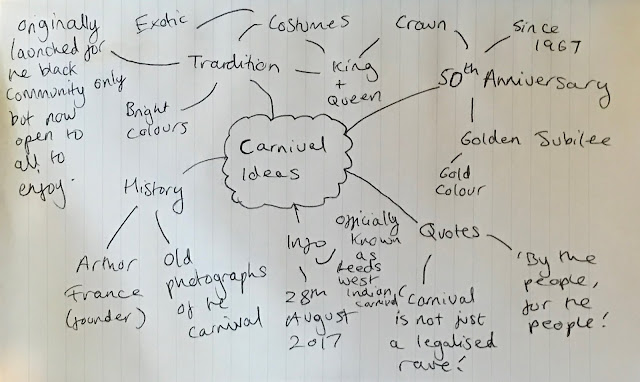 originally
launched for
the black
community only
but now
open to
all to
enjoy.
Exotic
Costumes
Trardition
King
+
Queen
Bright
colours
Crown
Since
1967
50th Anniversary
Golden Jubilee
Gold
Colour
Carnival
Ideas
History
Arthor
France
(founder)
Old
photographs
of the
carnival
Info
officially
known
as
Leeds
west
indian
carnival
28th
August
2017
Quotes
'Carnival
is not just
a legalised
rave!'
'By the
people,
for the
people!'